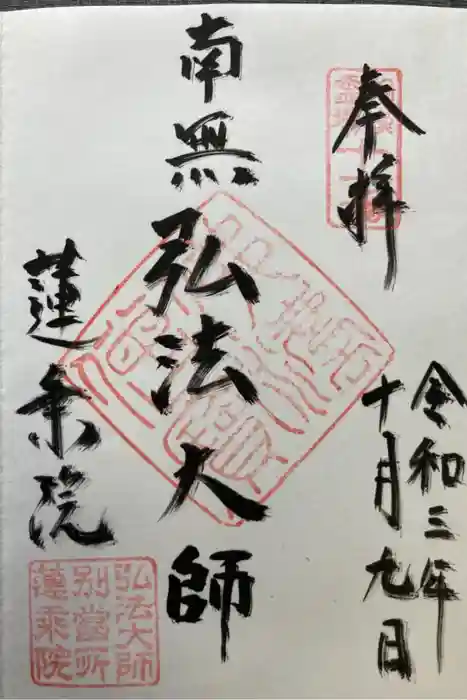 奉拝
令和三年
十月九日
南無弘法大師
蓮乗院
弘法大師
別當所
蓮乘院